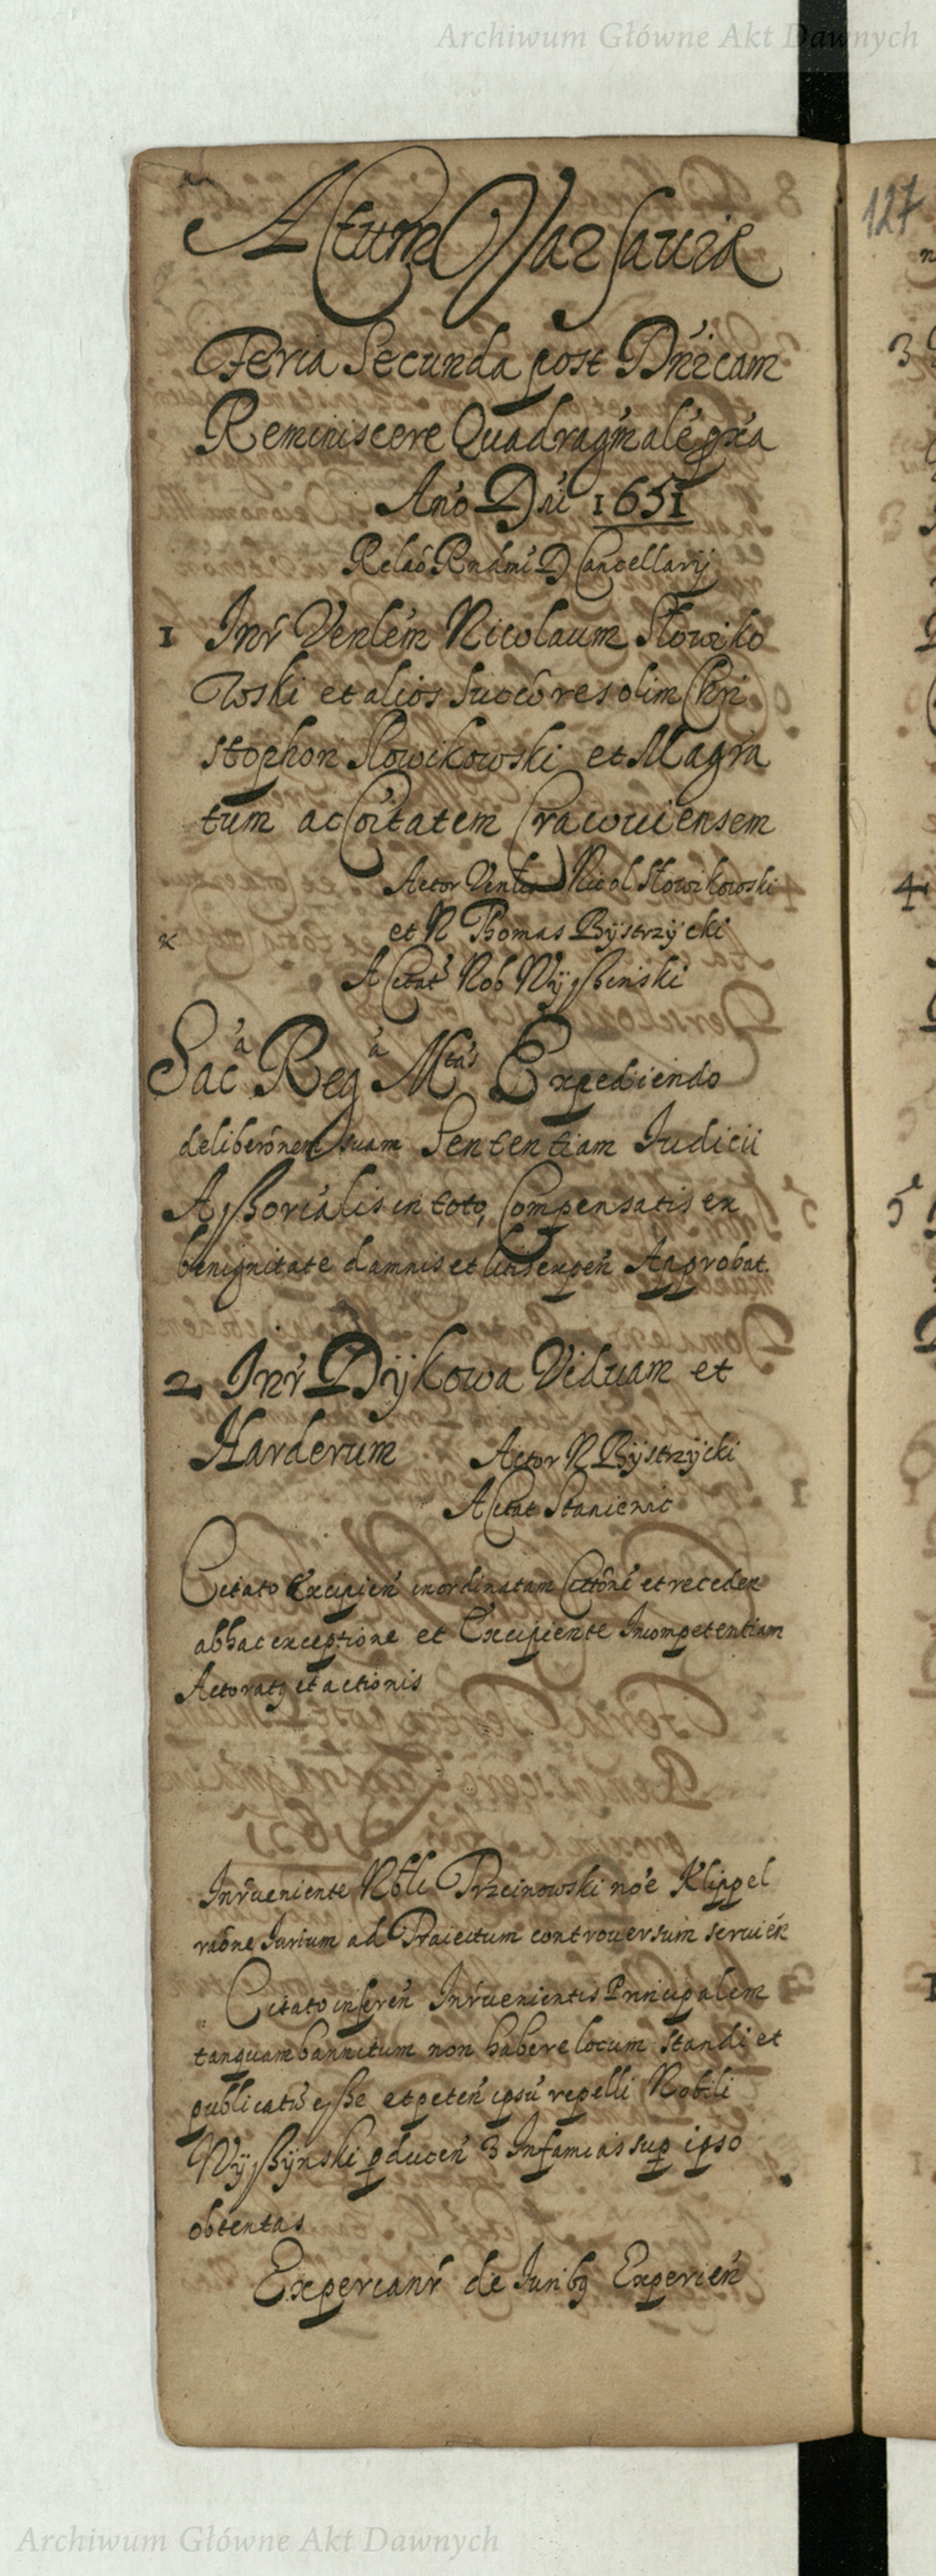 Archiwum Główne Akt Dawnych
Actum Varsaviæ
127
Feria Secunda post Dnicam
Reminiscere Quadragmale pxa
Ano Dni 1651
Relao Rndmi D Cancellarij
1 Intr Venlem Nicolaum Słowiko
wski et alios Succores olim Chri
stophori Słowikowski et Magra
tum ac Coitatem Cracoviensem
Actor Nicol Słowikowski
et N Thomas Bÿstrzÿcki
A Citat Nob Wÿszÿnski
Sac Reg Mtas Expediendo
deliberonem suam Sententiam Judicii
Assorialis in toto, Compensatis ex
benignitate damnis et litis expen Approbat.
2 Intr Dÿkowa Viduam et
Harderum Actor N Bÿstrzÿcki
A Citat Stanienic
Citato Excipien inordinatam et receden
ab hac exceptione et Excipiente Incompetentiam
Actoratq et actionis
Intrveniente Nobli Przcinowski noe Klippel
raone Iurium ad Praiectum controversum servien
Citato inferen Intrvenientis Principalem
tanquam bannitum non habere locum standi et
publicatu esse et peten ipsu repelli Nobili
Wÿszÿnski pducen 3 Infamias sup ipso
obtentas
Experianr de Iuribq Experien
3
4
5
Archiwum Główne Akt Dawnych